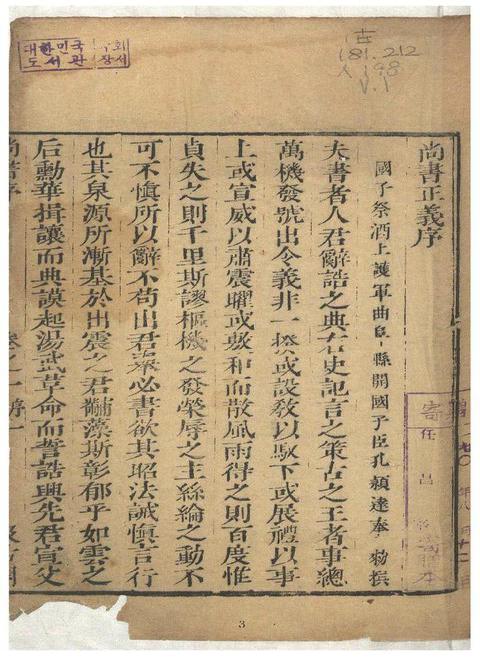 대한민국 국회
도서관 장서
古
181.212
V.1
尚書正義序
國子祭酒上護軍曲阜縣開國子臣孔穎達奉 勑撰
夫書者人君辭誥之典右史記言之策古之王者事總
萬機發號出令義非一揆或設教以馭下或展禮以事
上或宣威以肅震曜或敷和而散風雨得之則百度惟
貞失之則千里斯謬樞機之發榮辱之主絲綸之動不
可不慎所以辭不苟出君舉必書欲其昭法誡慎言行
也其泉源所漸基於出震之君黼藻斯彰郁乎如雲之
后勳華揖讓而典謨起湯武革命而誓誥興先君宣父
尚書序
寄
任昌
本
3